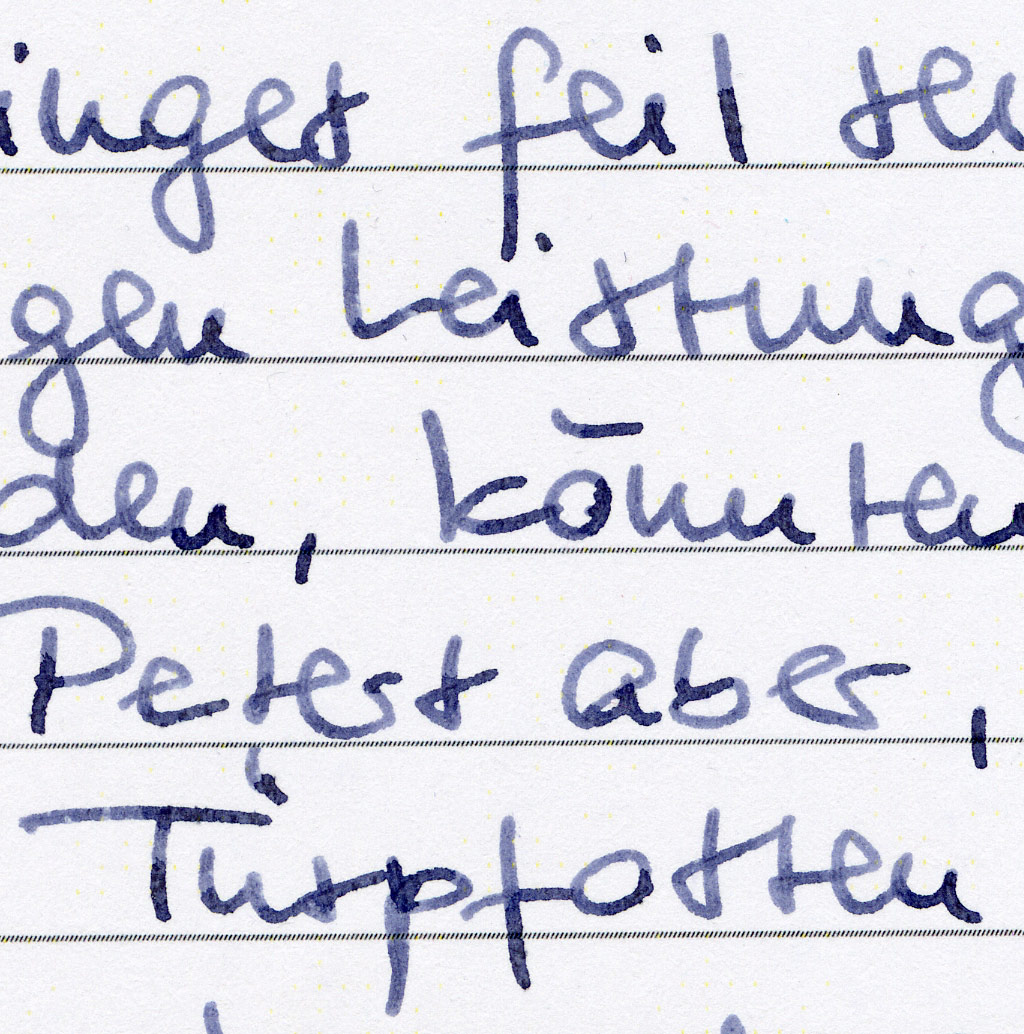 inges feil sei
gen Leistung
den, könnten
Peters aber,
Türpfosten